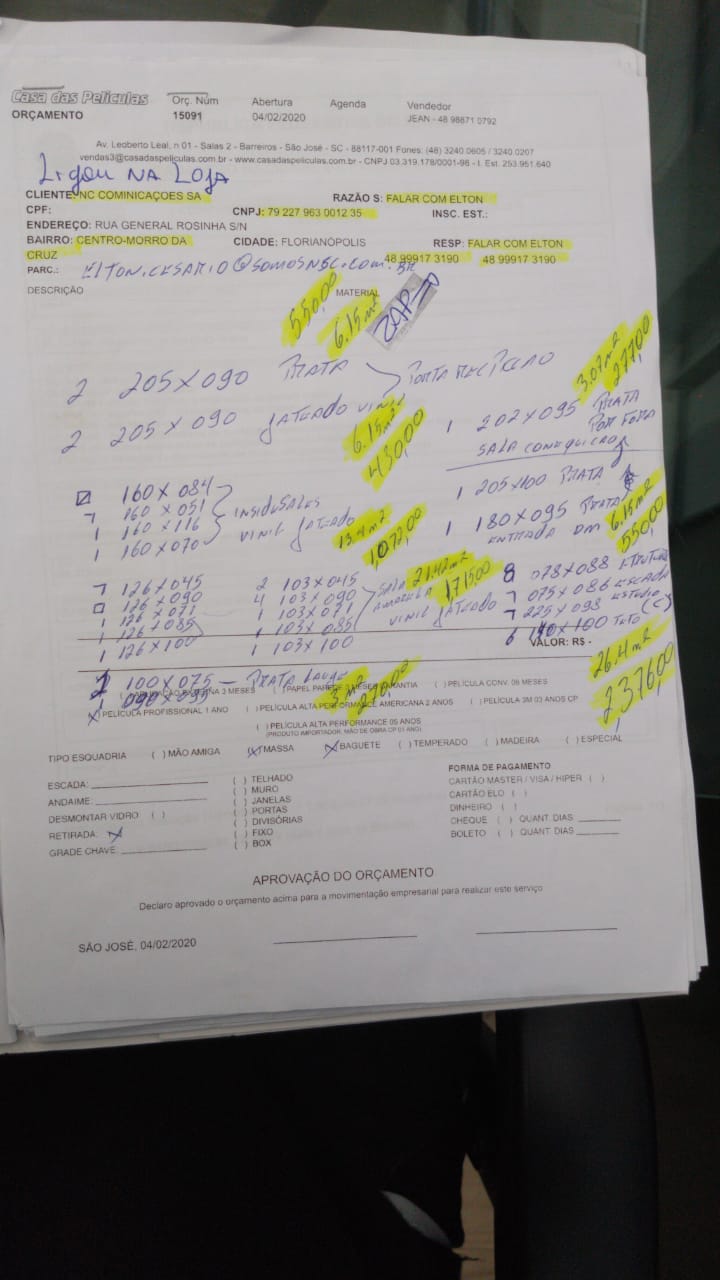 Casa das Películas
ORÇAMENTO
Orç. Núm
15091
Abertura
04/02/2020
Agenda
Vendedor
JEAN - 48 98871 0792
Av. Leoberto Leal, n 01 - Salas 2 - Barreiros - São José - SC - 88117-001 Fones: (48) 3240.0605 / 3240.0207
vendas3@casadaspeliculas.com.br - www.casadaspeliculas.com.br - CNPJ 03.319.178/0001-96 - I. Est. 253.951.640
LIGOU NA LOJA
CLIENTE: NC COMINICAÇOES SA RAZÃO S: FALAR COM ELTON
CPF: CNPJ: 79 227 963 0012 35 INSC. EST.:
ENDEREÇO: RUA GENERAL ROSINHA S/N
BAIRRO: CENTRO-MORRO DA CRUZ CIDADE: FLORIANÓPOLIS RESP: FALAR COM ELTON
48 99917 3190 48 99917 3190
PARC.: ELTON.CESARIO@SOMOSNSC.COM.BR
DESCRIÇÃO MATERIAL
550,00
6.15m²
2 205X090 PRATA
2 205X090 JATEADO VINIL
6.15m²
430,00
3.07m²
277,00
1 202X095 PRATA
POR FORA
1 205X100 PRATA
1 180X095 PRATA
6.15m²
550,00
160X084
160X051
1 160X116
1 160X070
INSIDE SALES
VINIL JATEADO
13.4m²
1,072,00
126X045
126X090
1 126X071
1 126X085
1 126X100
2 103X045
4 103X090
1 103X071
1 103X085
1 103X100
SALA
VINIL JATEADO
21.42m²
1715,00
8 078X088
075X086 ESCADA
225X098 ESTUDIO
VALOR: R$ -
26.4m²
2376,00
2 100X075 - PRATA
1 090X095
3m²
270,00
( ) PAPEL PAREDE 3 MESES GARANTIA ( ) PELÍCULA CONV. 06 MESES
(X) PELÍCULA PROFISSIONAL 1 ANO ( ) PELÍCULA ALTA PERFORMANCE AMERICANA 2 ANOS ( ) PELÍCULA 3M 03 ANOS CP
( ) PELÍCULA ALTA PERFORMANCE 05 ANOS
(PRODUTO IMPORTADOR, MÃO DE OBRA CP 01 ANO)
TIPO ESQUADRIA ( ) MÃO AMIGA (X) MASSA (X) BAGUETE ( ) TEMPERADO ( ) MADEIRA ( ) ESPECIAL
ESCADA:
ANDAIME:
DESMONTAR VIDRO ( )
RETIRADA: X
GRADE CHAVE:
( ) TELHADO
( ) MURO
( ) JANELAS
( ) PORTAS
( ) DIVISÓRIAS
( ) FIXO
( ) BOX
FORMA DE PAGAMENTO
CARTÃO MASTER / VISA / HIPER ( )
CARTÃO ELO ( )
DINHEIRO ( )
CHEQUE ( ) QUANT. DIAS
BOLETO ( ) QUANT. DIAS
APROVAÇÃO DO ORÇAMENTO
Declaro aprovado o orçamento acima para a movimentação empresarial para realizar este serviço
SÃO JOSÉ, 04/02/2020